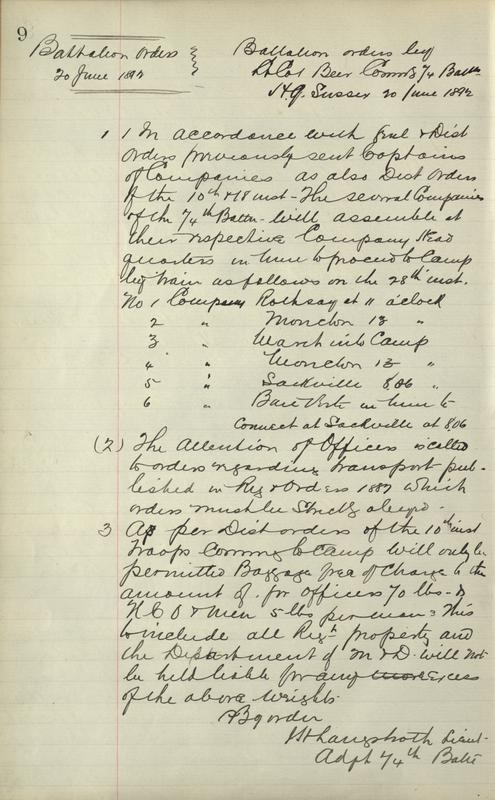 9
Battalion Orders
20 June 1892
Battalion orders by
Lt Col Beer Commdg 74 Battn
H.Q. Sussex 20 June 1892
1 1 In accordance with Genl & Dist
Orders previously sent Captains
of Companies as also Dist Orders
of the 10th & 18 inst - The several Companies
of the 74th Battn - will assemble at
their respective Company Head
quarters in time to proceed to Camp
by train as follows on the 28th inst.
No 1 Company Rothsay at 11 o'clock
2 " Moncton 13 "
3 " March into Camp
4 " Moncton 13 "
5 " Sackville 8,06 "
6 " Baie Verte in time to
Connect at Sackville at 8,06
(2) The Attention of Officers is called
to orders regarding Transport pub-
lished in Reg & Orders 1887 which
orders must be Strictly obeyed.
3 As per Dist orders of the 10th inst
Troops Coming to Camp will only be
permitted Baggage free of Charge to the
amount of. for Officers 70 lbs - &
N C O & Men 5 lbs per man = This
to include all Regtl property and
the Department of M & D. will not
be held liable for any more Excess
of the above weights
By order
Langstroth Lieut
Adjt 74th Battn